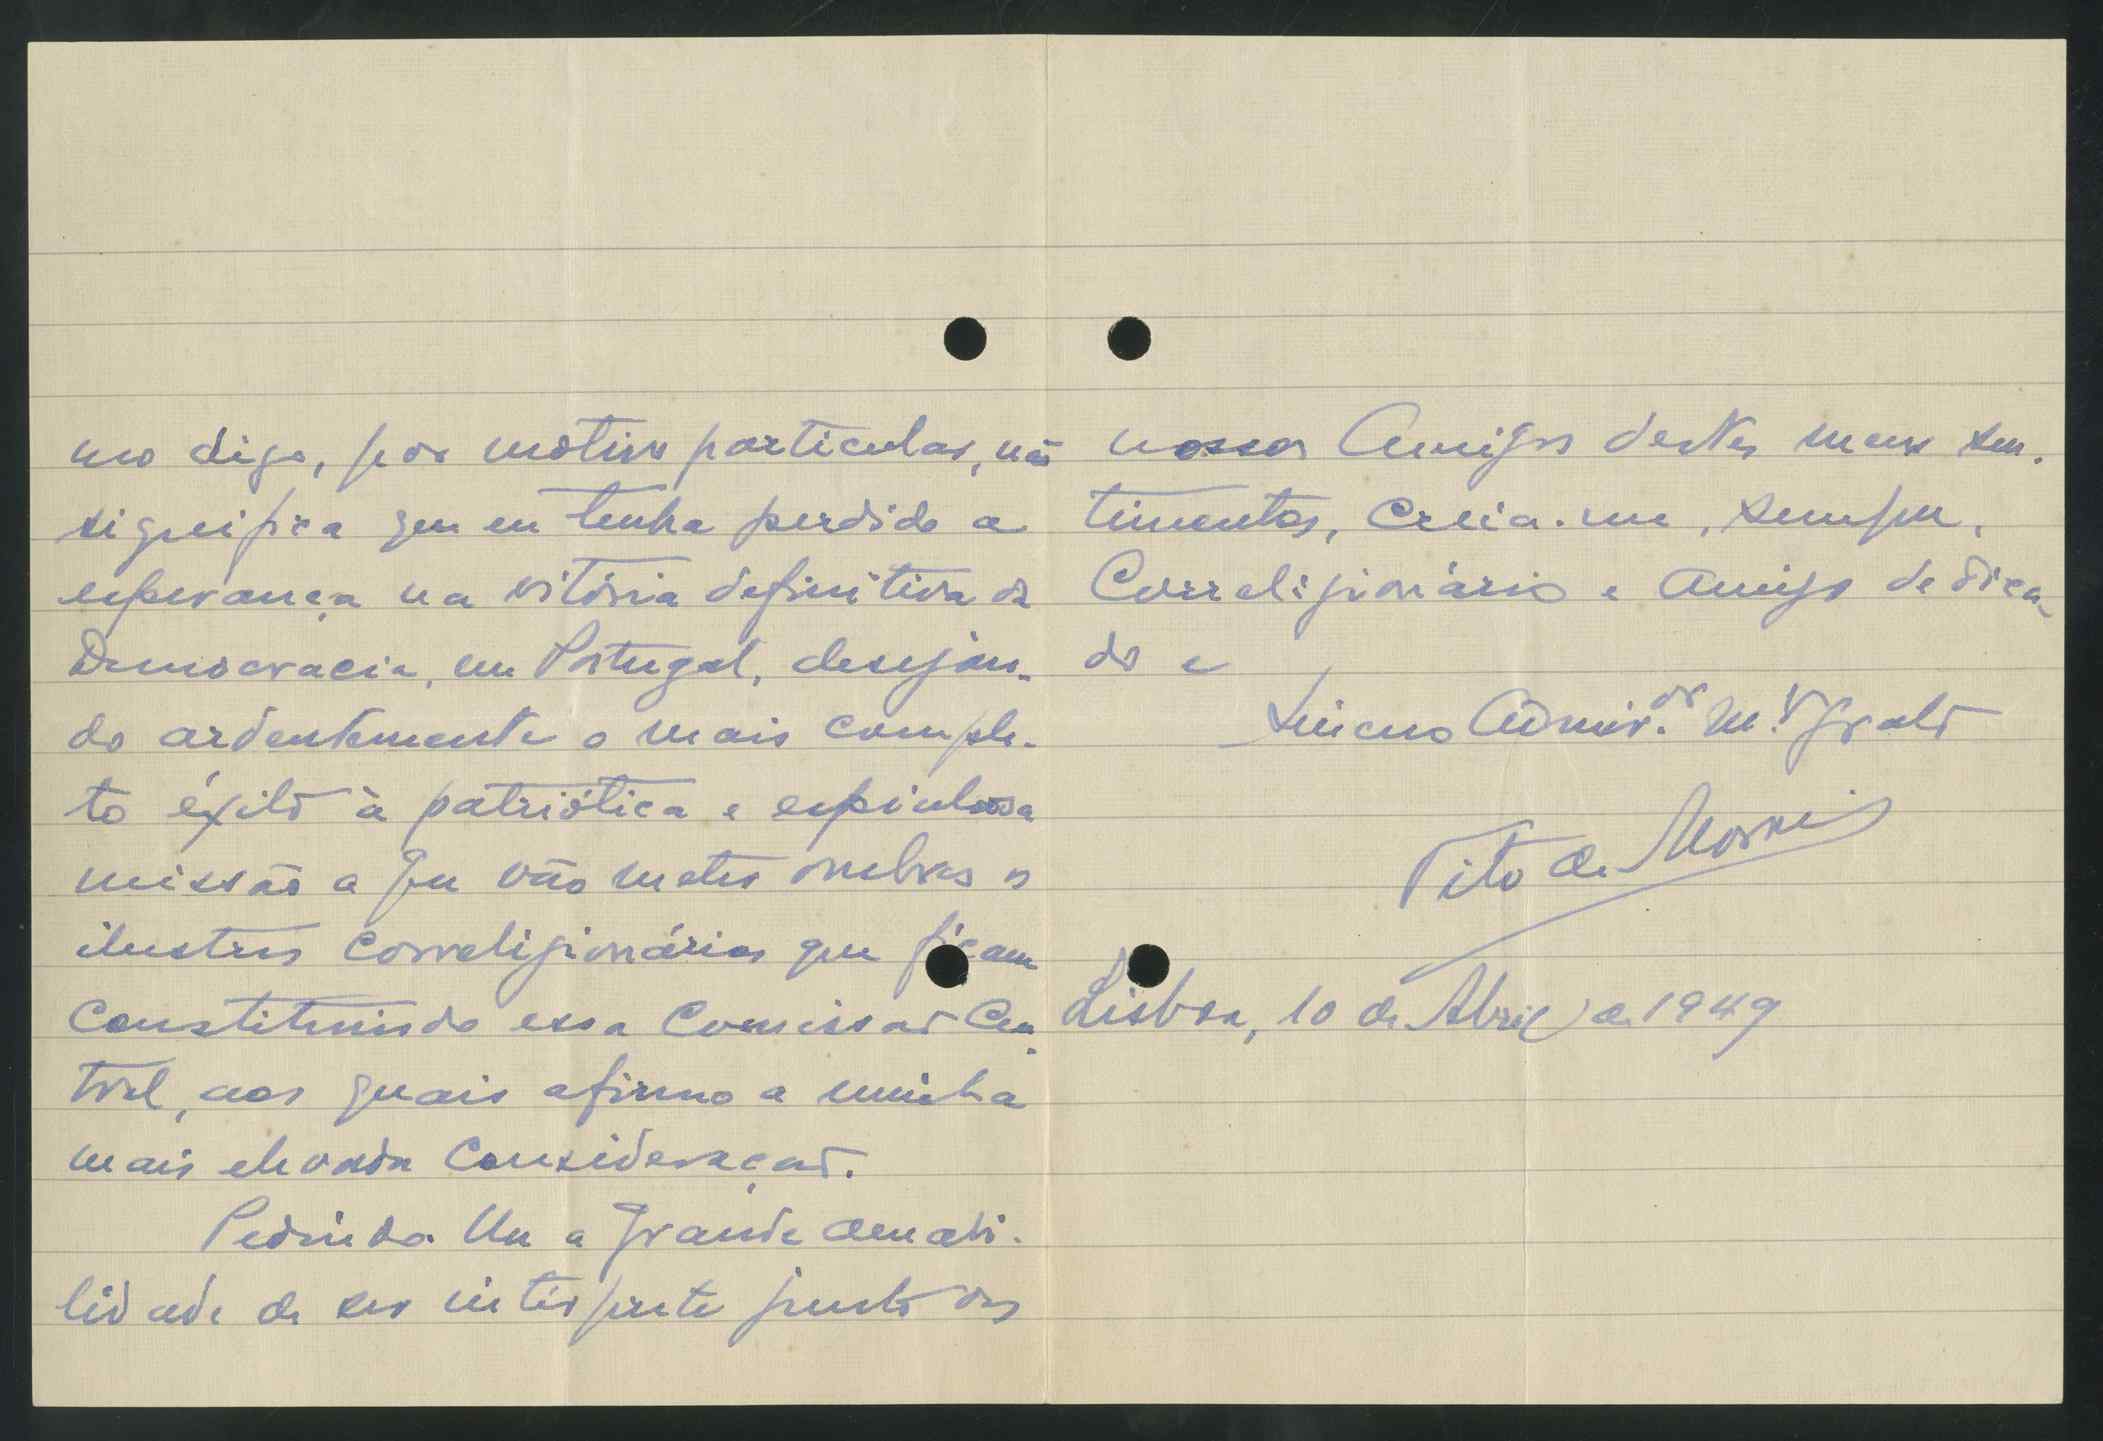 mo digo, por motivo particular, não
significa que eu tenha perdido a
esperança na vitória definitiva da
Democracia, em Portugal, desejan-
do ardentemente o mais comple-
to êxito à patriótica e espinhosa
missão a que vão meter ombros os
ilustres correligionários que ficam
constituindo essa Comissão Cen-
tral, aos quais afirmo a minha
mais elevada consideração.
Pedindo-lhe a grande amabi-
lidade de ser intérprete junto dos
nossos Amigos destes meus sen-
timentos, creia-me, sempre,
Correligionário e Amigo dedica-
do e
sincero Admir.or M.to Grato
Tito de Morais
Lisboa, 10 de Abril de 1949